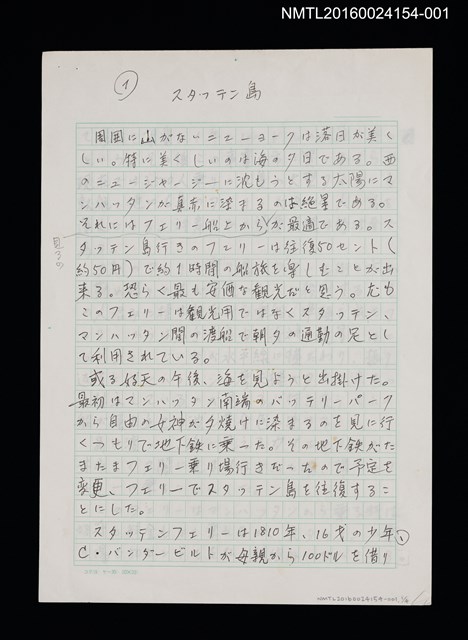 NMTL20160024154-001
1
スタッテン島
周囲に山がないニューヨークは落日が美く
しい。特に美くしいのは海の夕日である。西
のニュージャージーに沈もうとする太陽にマ
ンハッタンが真赤に染まるのは絶景である。
それにはフェリー船上からが最適である。ス
見るの
タッテン島行きのフェリーは往復50セント(
約50円)で約1時間の船旅を楽しむことが出
来る。恐らく最も安価な観光だと思う。尤も
このフェリーは観光用ではなくスタッテン、
マンハッタン間の渡船で朝夕の通勤の足とし
て利用されている。
或る好天の午後、海を見ようと出掛けた。
最初はマンハッタン南端のバッテリーパーク
から自由の女神が夕焼けに染まるのを見に行
くつもりで地下鉄に乗った。その地下鉄がた
またまフェリー乗り場行きだったので予定を
変更、フェリーでスタッテン島を往復するこ
とにした。
スタッテンフェリーは1810年、16才の少年
C・バンダービルトが母親から100ドルを借り
1
NMTL20160024154-001